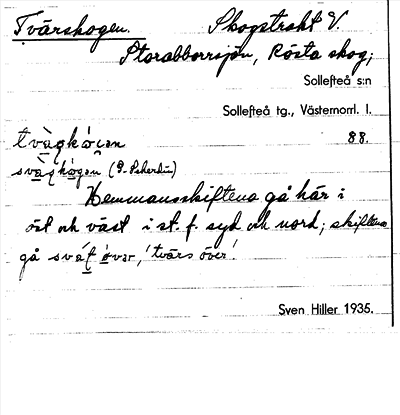 Tvärskogen. Skogstrakt V.
Storabborrsjön, Rösta skog;
Sollefteå s:n
Sollefteå tg., Västernorrl. l.
88.
Hemmansskiftena gå här i
öst och väst i st. f. syd och nord; skiftena
gå över, 'tvärs över'.
Sven Hiller 1935.